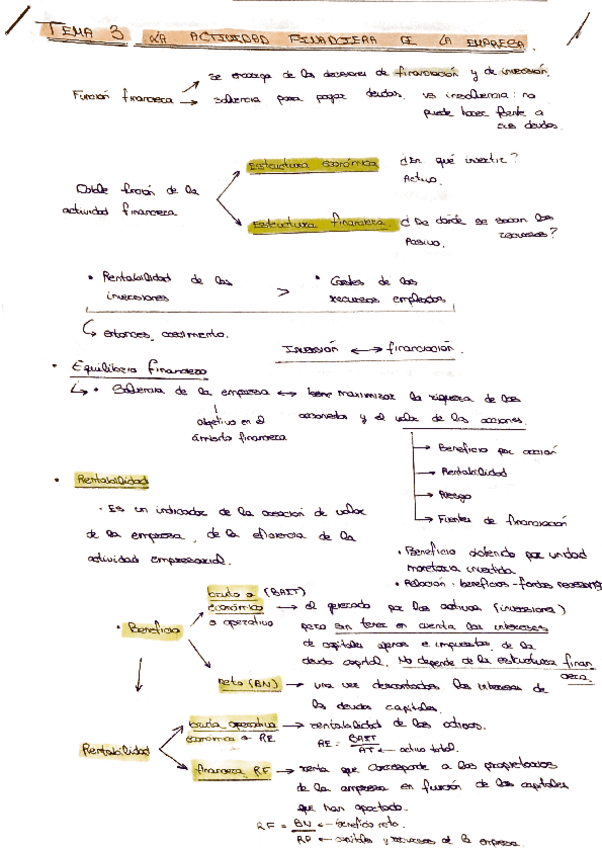 TEMA 3 LA ACTIVIDAD FINANCIERA DE LA EMPRESA.
Función financiera → se encarga de las decisiones de financiación y de inversión.
→ solvencia para pagar deudas. vs insolvencia: no
puede hacer frente a
sus deudas.
Doble función de la
actividad financiera
Estructura económica ¿En qué invertir?
Activo.
Estructura financiera ¿De dónde se sacan los
recursos?
Pasivo.
• Rentabilidad de las
inversiones
>
• Costes de los
recursos empleados
↳ entonces, crecimiento.
Inversión ↔ financiación.
• Equilibrio financiero
↳ • Solvencia de la empresa ↔ maximizar la riqueza de los
accionistas y el valor de las acciones.
objetivo en el
ámbito financiero
→ Beneficio por acción
→ Rentabilidad
→ Riesgo
→ Fuentes de financiación
• Rentabilidad
• Es un indicador de la creación de valor
de la empresa, de la eficiencia de la
actividad empresarial.
• Beneficio obtenido por unidad
monetaria invertida
• Relación: beneficios - fondos
• Beneficio
bruto o (BAIT)
económico
o operativo
→ el generado por los activos (inversiones)
pero sin tener en cuenta los intereses
de capitales ajenos e impuestos, de la
deuda capital. No depende de la estructura finan
ciera.
neto (BN) → una vez descontados los intereses de
las deudas capitales.
Rentabilidad
bruta operativa
económica o RE
→ rentabilidad de los activos.
RE = BAIT
AT ← activo total.
financiera RF → renta que corresponde a los propietarios
de la empresa en función de los capitales
que han aportado.
RF = BN ← beneficio neto.
RP ← capitales y recursos de la empresa.